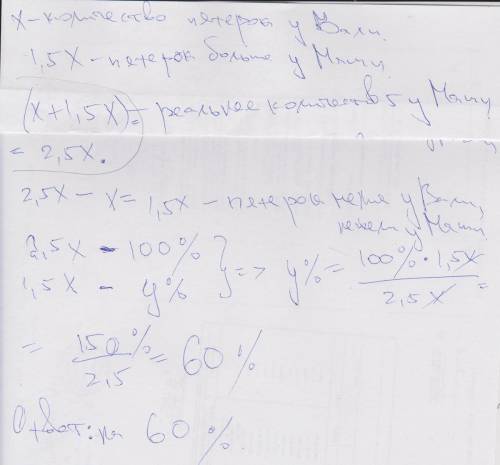 x - количество пятерок у Вали.
1,5x - пятерок больше у Маши
(x+1,5x) = реальное количество 5 у Маши
= 2,5x.
2,5x - x = 1,5x - пятерок меньше у Вали,
нежели у Маши
2,5x - 100%
1,5x - y% } => y% = 100% · 1,5x / 2,5x =
= 150% / 2,5 = 60%
Ответ: на 60%.